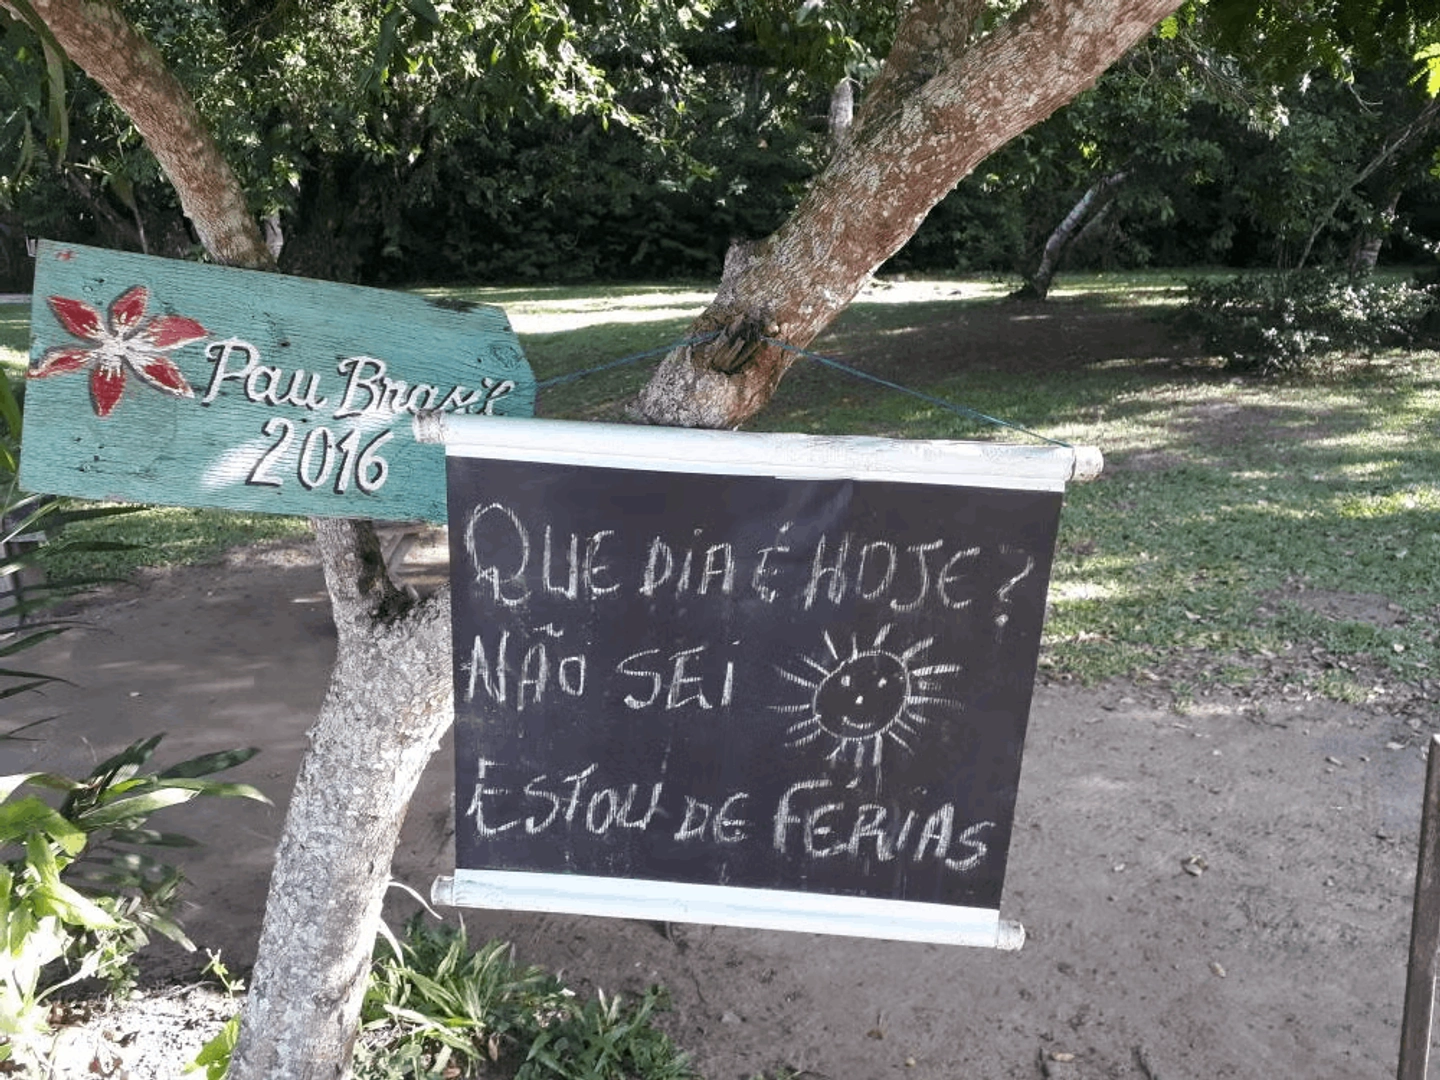 Pau Brasil
2016
QUE DIA É HOJE?
NÃO SEI
ESTOU DE FERIAS